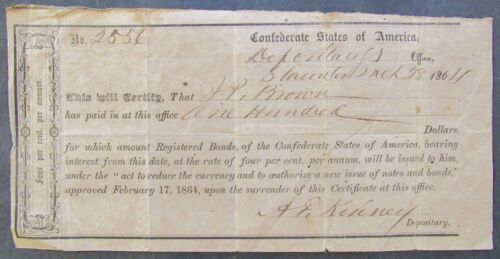 Four per cent. per annum.
No. 2856
Confederate States of America,
Depositary's Office,
Staunton Mch 28 1864
This will Certify, That J. P. Brown
has paid in at this office One Hundred
Dollars,
for which amount Registered Bonds, of the Confederate States of America, bearing
interest from this date, at the rate of four per cent. per annum, will be issued to him,
under the "act to reduce the currency and to authorize a new issue of notes and bonds,"
approved February 17, 1864, upon the surrender of this Certificate at this office.
A. F. Kinney
Depositary.